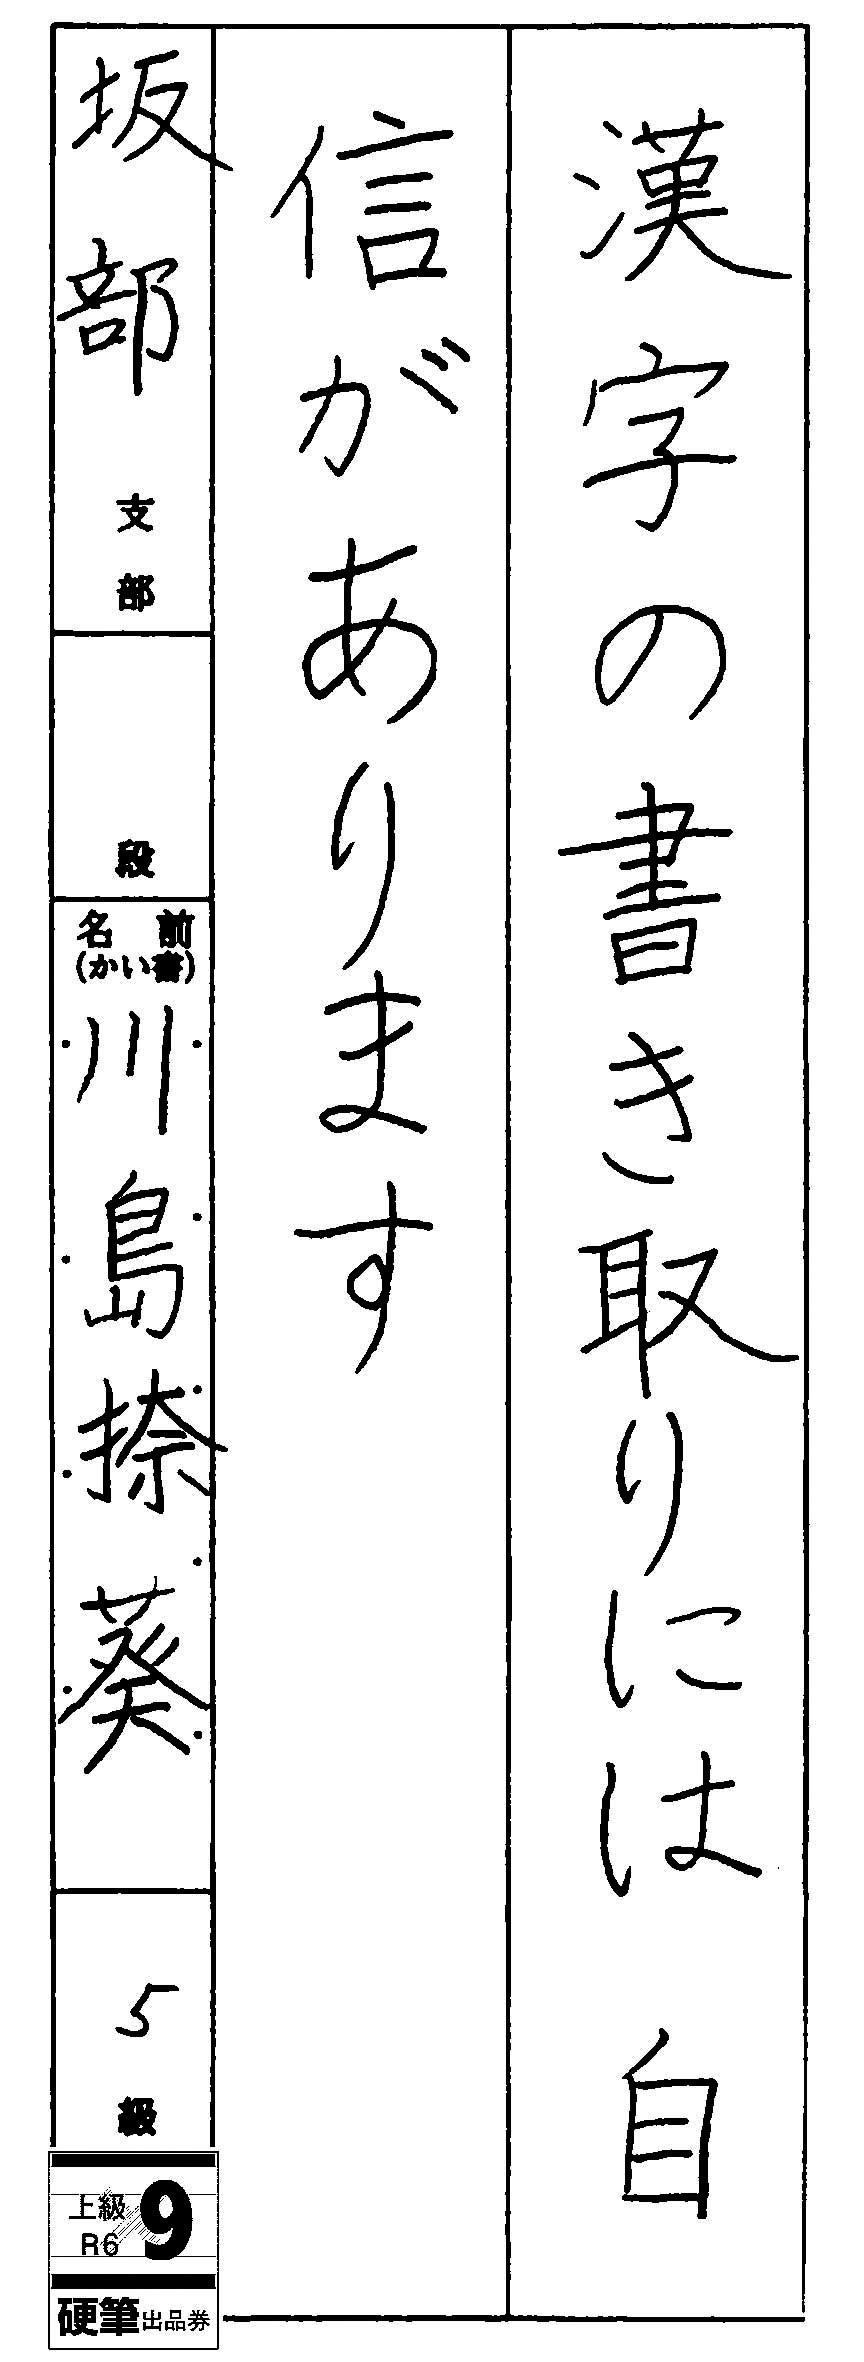 漢字の書き取りには自
信があります
坂部支部
段
名前
(かい書)
川島捺葵
5級
上級 9
R6
硬筆出品券